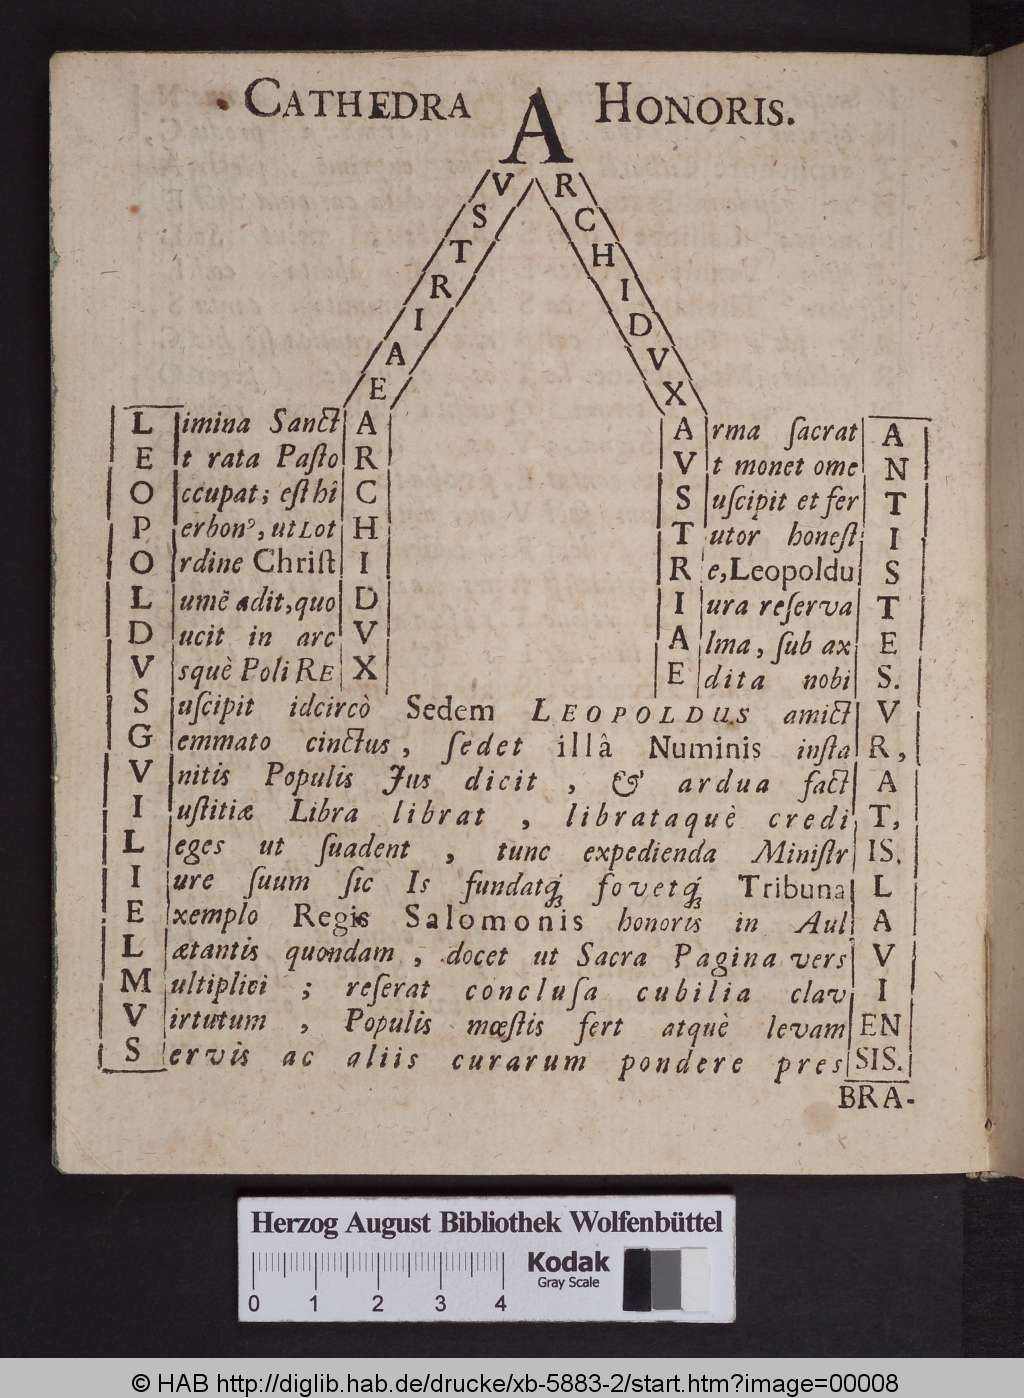 CATHEDRA A HONORIS.
V R
S C
T H
R I
I D
A V
E X
L imina Sanct A A rma sacrat A
E t rata Pasto R V t monet ome N
O ccupat; est hî C S uscipit et fer T
P erbonꝰ, ut LOT H T utor honest I
O rdine Christ I R e, Leopoldu S
L umẽ adit, quo D I ura reserva T
D ucit in arc V A lma, sub ax E
V squè Poli RE X E dita nobi S.
S uscipit idcircò Sedem LEOPOLDUS amict V
G emmato cinctus, sedet illâ Numinis insta R,
V nitis Populis Jus dicit, & ardua fact A
I ustitiæ Libra librat, librataquè credi T,
L eges ut suadent, tunc expedienda Ministr IS.
I ure suum sic Is fundatq́ꝫ fovetq́ꝫ Tribuna L
E xemplo Regis Salomonis honoris in Aul A
L ætantis quondam, docet ut Sacra Pagina vers V
M ultiplici; reserat conclusa cubilia clav I
V irtutum, Populis mœstis fert atquè levam EN
S ervis ac aliis curarum pondere pres SIS.
BRA-
Herzog August Bibliothek Wolfenbüttel
Kodak
Gray Scale
0 1 2 3 4
© HAB http://diglib.hab.de/drucke/xb-5883-2/start.htm?image=00008